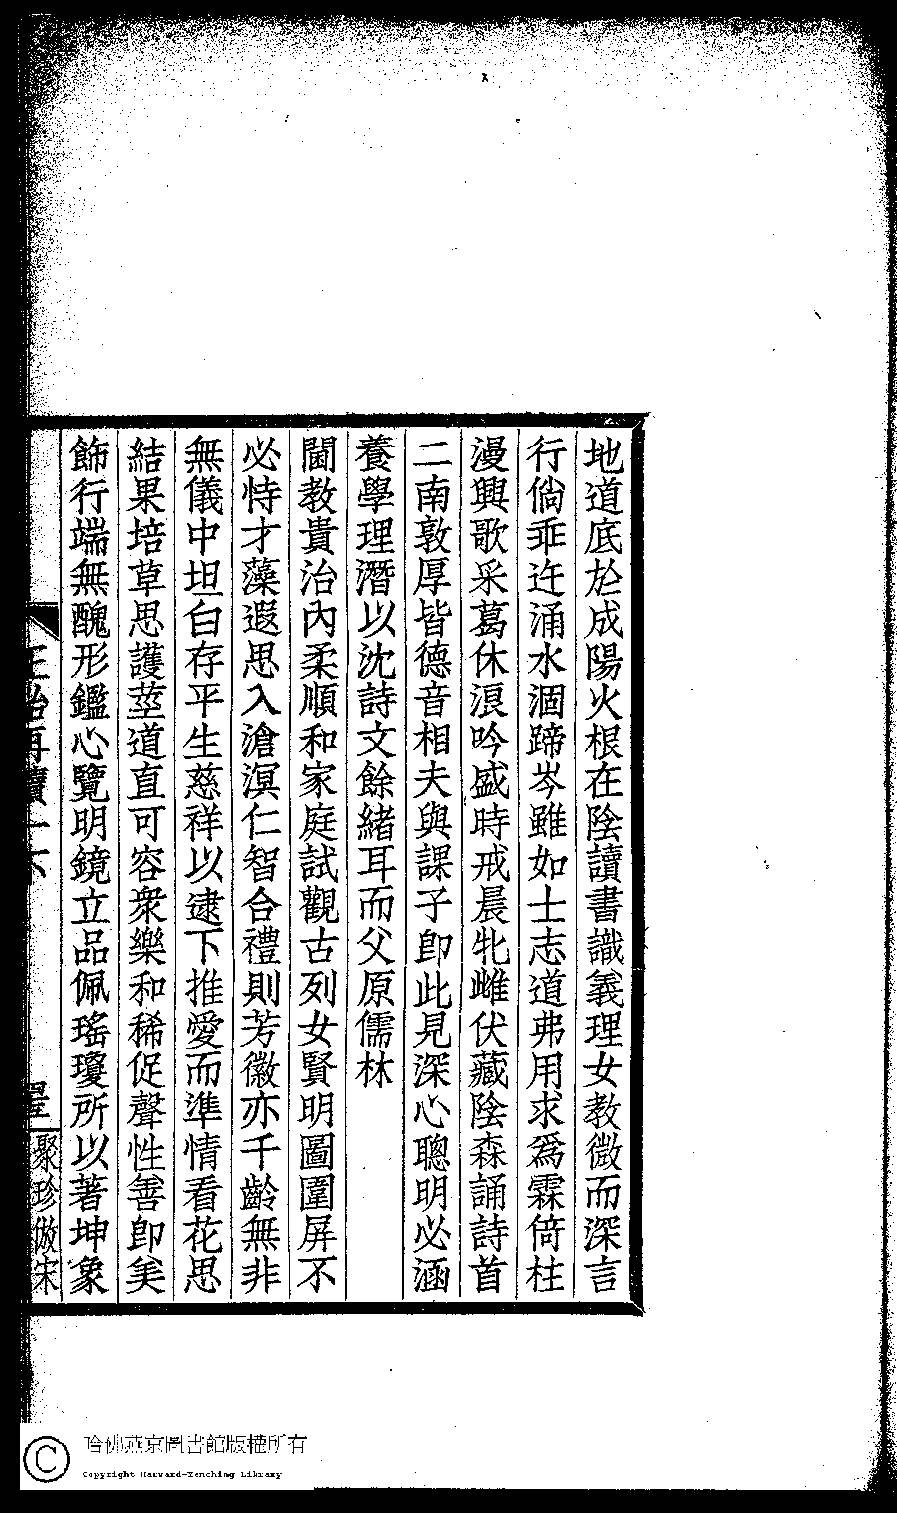 地道底於成陽火根在陰讀書識義理女教微而深言
行倘乖迕涌水涸蹄岑雖如士志道弗用求為霖倚柱
漫興歌采葛休浪吟盛時戒晨牝雌伏藏陰森誦詩首
二南敦厚皆德音相夫與課子卽此見深心聰明必涵
養學理潛以沈詩文餘緒耳而父原儒林
閫教貴治內柔順和家庭試觀古列女賢明圖圍屏不
必恃才藻遐思入滄溟仁智合禮則芳徽亦千齡無非
無儀中坦白存平生慈祥以逮下推愛而準情看花思
結果培草思護莖道直可容衆樂和稀促聲性善卽美
飾行端無醜形鑑心覽明鏡立品佩瑤瓊所以著坤象
聚珍倣宋
哈佛燕京圖書館版權所有
Copyright Harvard-Yenching Library